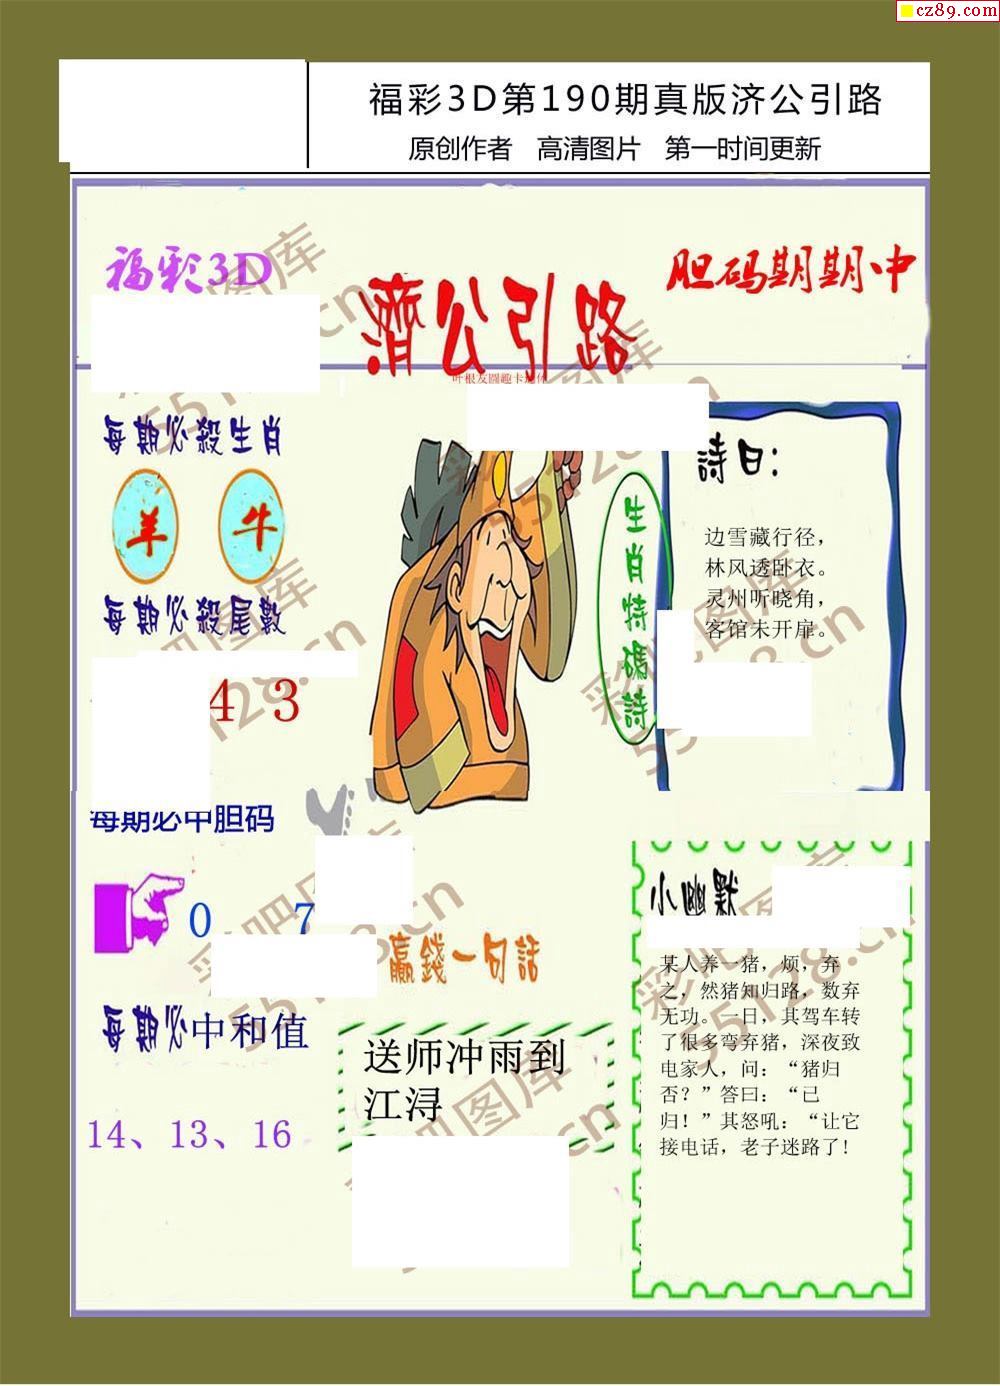 cz89.com
福彩3D第190期真版济公引路
原创作者 高清图片 第一时间更新
福彩3D
濟公引路
胆码期期中
叶根友圆趣卡通体
每期必殺生肖
羊 牛
每期必殺尾數
4 3
每期必中胆码
0 7
每期必中和值
14、13、16
生肖特碼詩
詩曰：
边雪藏行径，
林风透卧衣。
灵州听晓角，
客馆未开扉。
贏錢一句話
送师冲雨到
江浔
小幽默
某人养一猪，烦，弃
之，然猪知归路，数弃
无功。一日，其驾车转
了很多弯弃猪，深夜致
电家人，问：“猪归
否？”答曰：“已
归！”其怒吼：“让它
接电话，老子迷路了!
彩吧图库
55128.cn